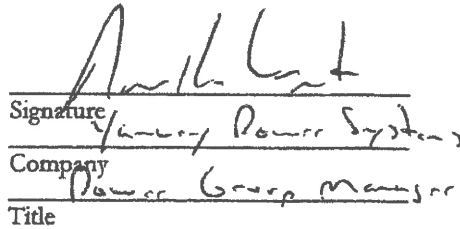 Signature
Power Systems
Company
Power Group Manager
Title